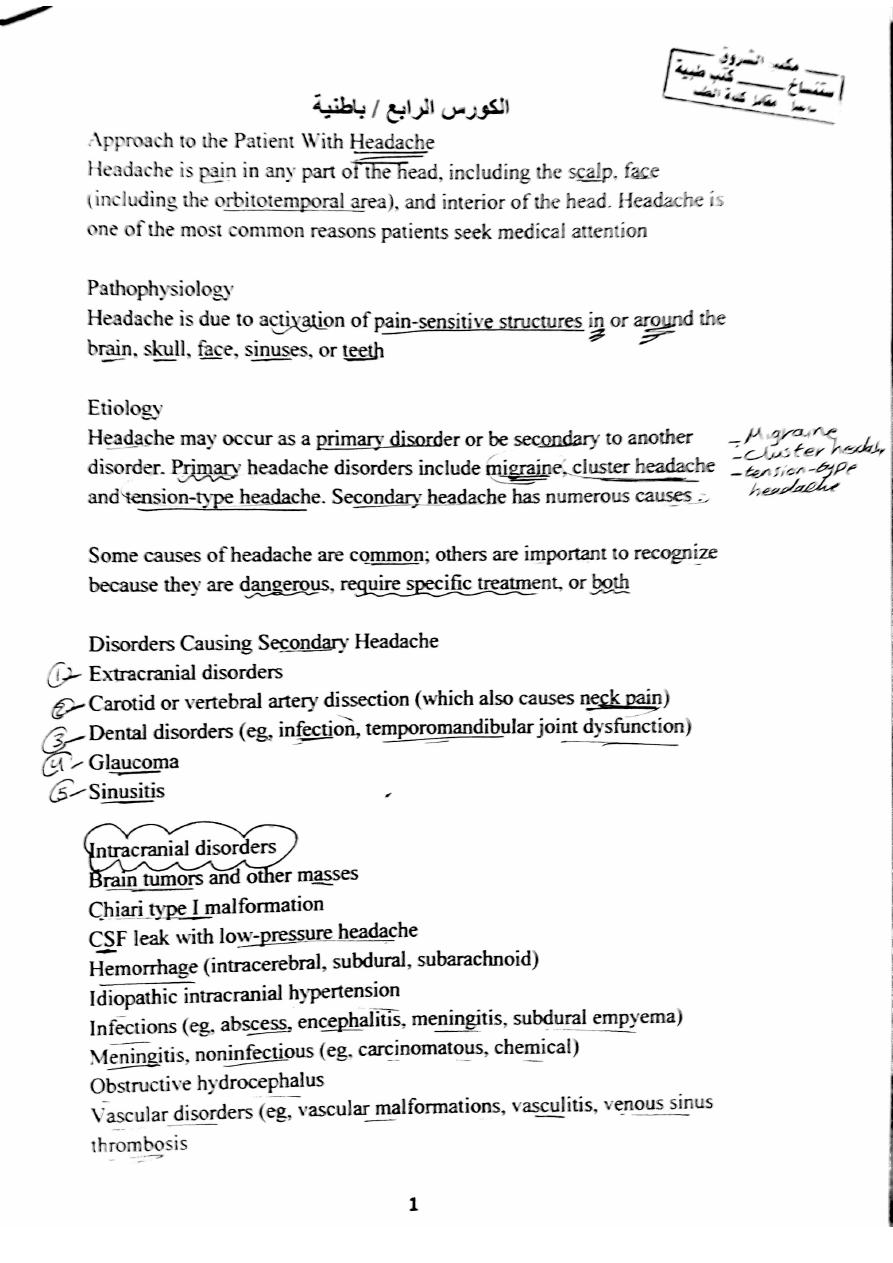 مكتب الشروق
ستنساخ كتب طبية
الكورس الرابع / باطنية
Approach to the Patient With Headache
Headache is pain in any part of the head, including the scalp, face
(including the orbitotemporal area), and interior of the head. Headache is
one of the most common reasons patients seek medical attention
Pathophysiology
Headache is due to activation of pain-sensitive structures in or around the
brain, skull, face, sinuses, or teeth
Etiology
Headache may occur as a primary disorder or be secondary to another
disorder. Primary headache disorders include migraine, cluster headache
and tension-type headache. Secondary headache has numerous causes
- Migraine
- cluster headache
- tension-type
headache
Some causes of headache are common; others are important to recognize
because they are dangerous, require specific treatment, or both
Disorders Causing Secondary Headache
1- Extracranial disorders
2- Carotid or vertebral artery dissection (which also causes neck pain)
3- Dental disorders (eg, infection, temporomandibular joint dysfunction)
4- Glaucoma
5- Sinusitis
Intracranial disorders
Brain tumors and other masses
Chiari type I malformation
CSF leak with low-pressure headache
Hemorrhage (intracerebral, subdural, subarachnoid)
Idiopathic intracranial hypertension
Infections (eg, abscess, encephalitis, meningitis, subdural empyema)
Meningitis, noninfectious (eg, carcinomatous, chemical)
Obstructive hydrocephalus
Vascular disorders (eg, vascular malformations, vasculitis, venous sinus
thrombosis
1